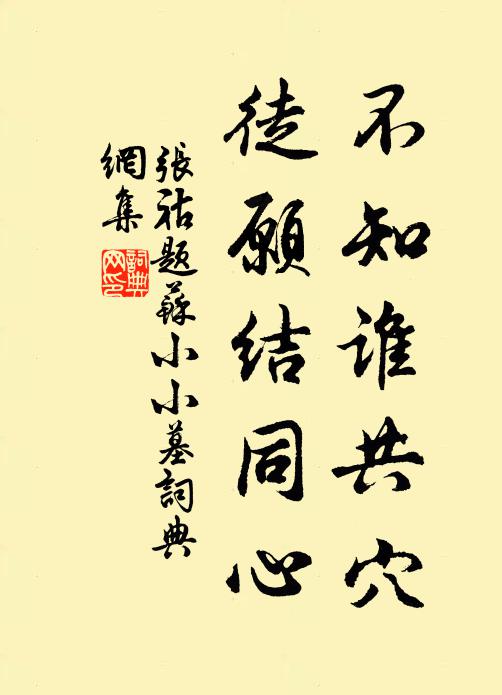 不知谁共穴
徒願结同心
張祜題蘇小小墓詞典
網集
詞典
网印